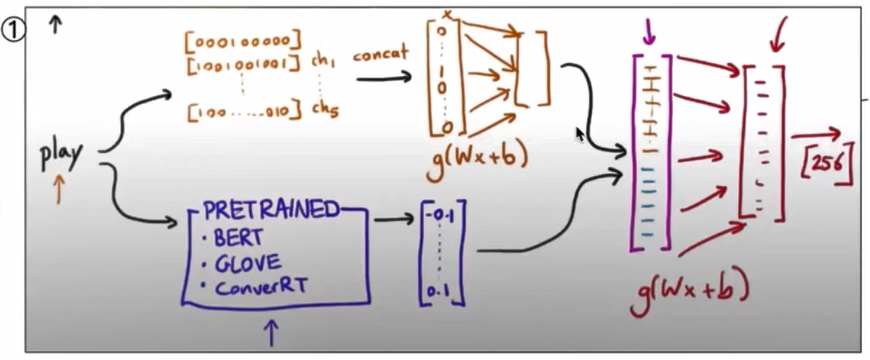 ①
play
[000100000]
[1001001001] ch1
[100......010] ch5
concat
x
0
1
0
0
g(Wx+b)
PRETRAINED
· BERT
· GLOVE
· ConveRT
-0.1
0.1
g(Wx+b)
[256]